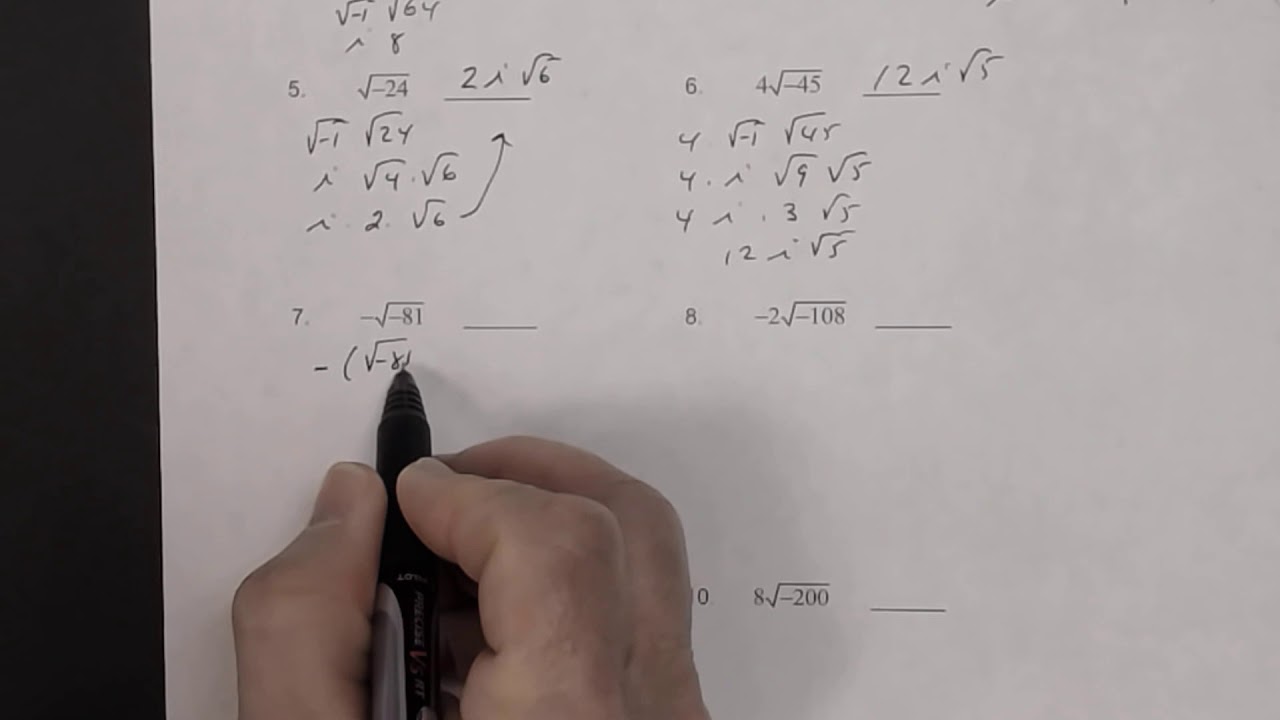 √-1 √64
i 8
5. √-24 2i√6
√-1 √24
i √4 · √6
i · 2 · √6
6. 4√-45 12i√5
4 √-1 √45
4 · i √9 √5
4 i · 3 √5
12i√5
7. -√-81
-(√-81
8. -2√-108
0. 8√-200
PILOT
PRECISE V5 RT